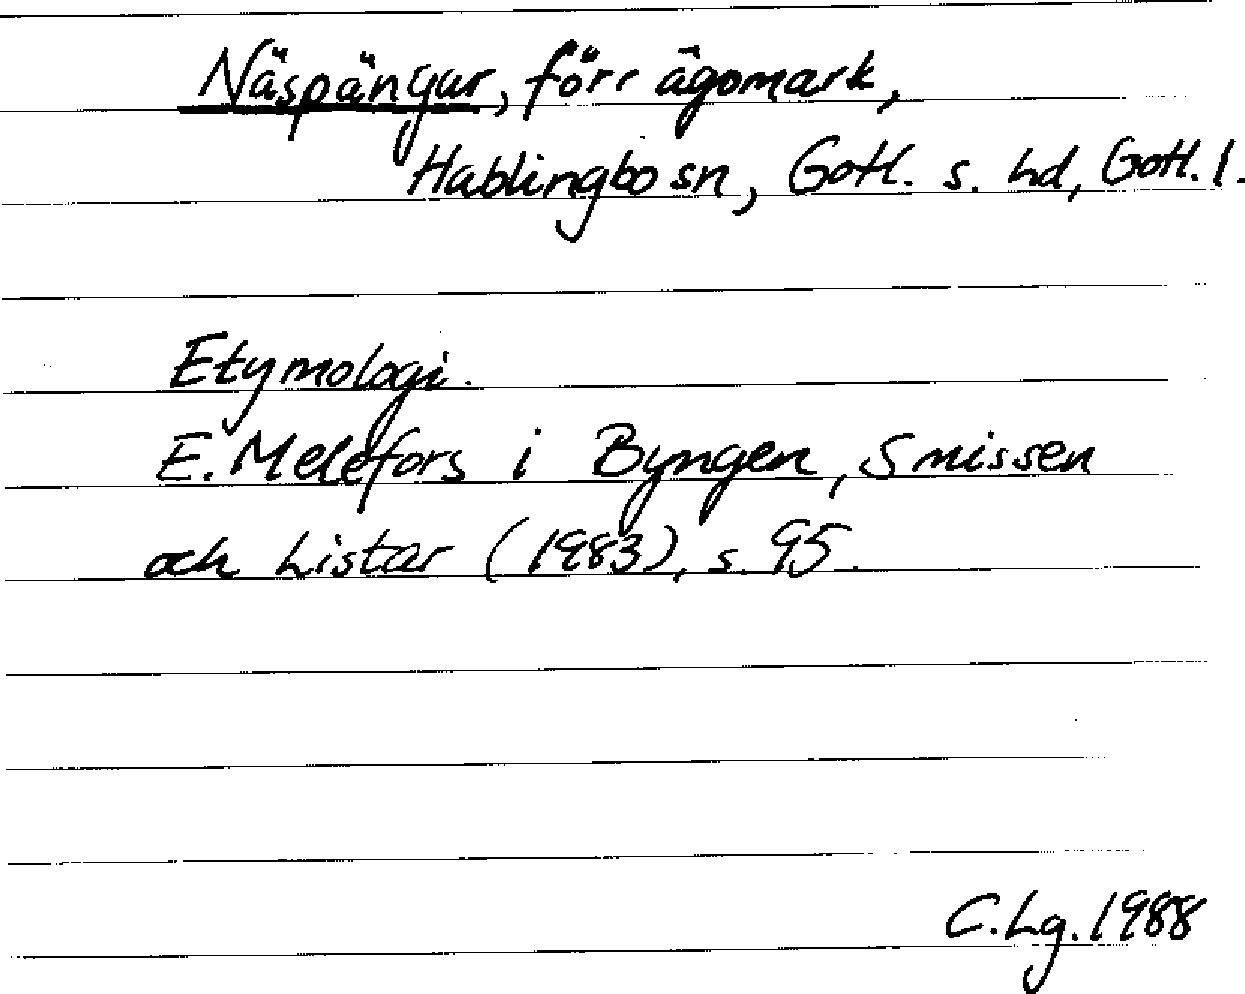 Näspängar, förr ägomark,
Hablingbo sn, Gotl. s. hd, Gotl. l.
Etymologi.
E. Melefors i Byngen, Smissen
och Listar (1983), s. 95.
C. Lg. 1988